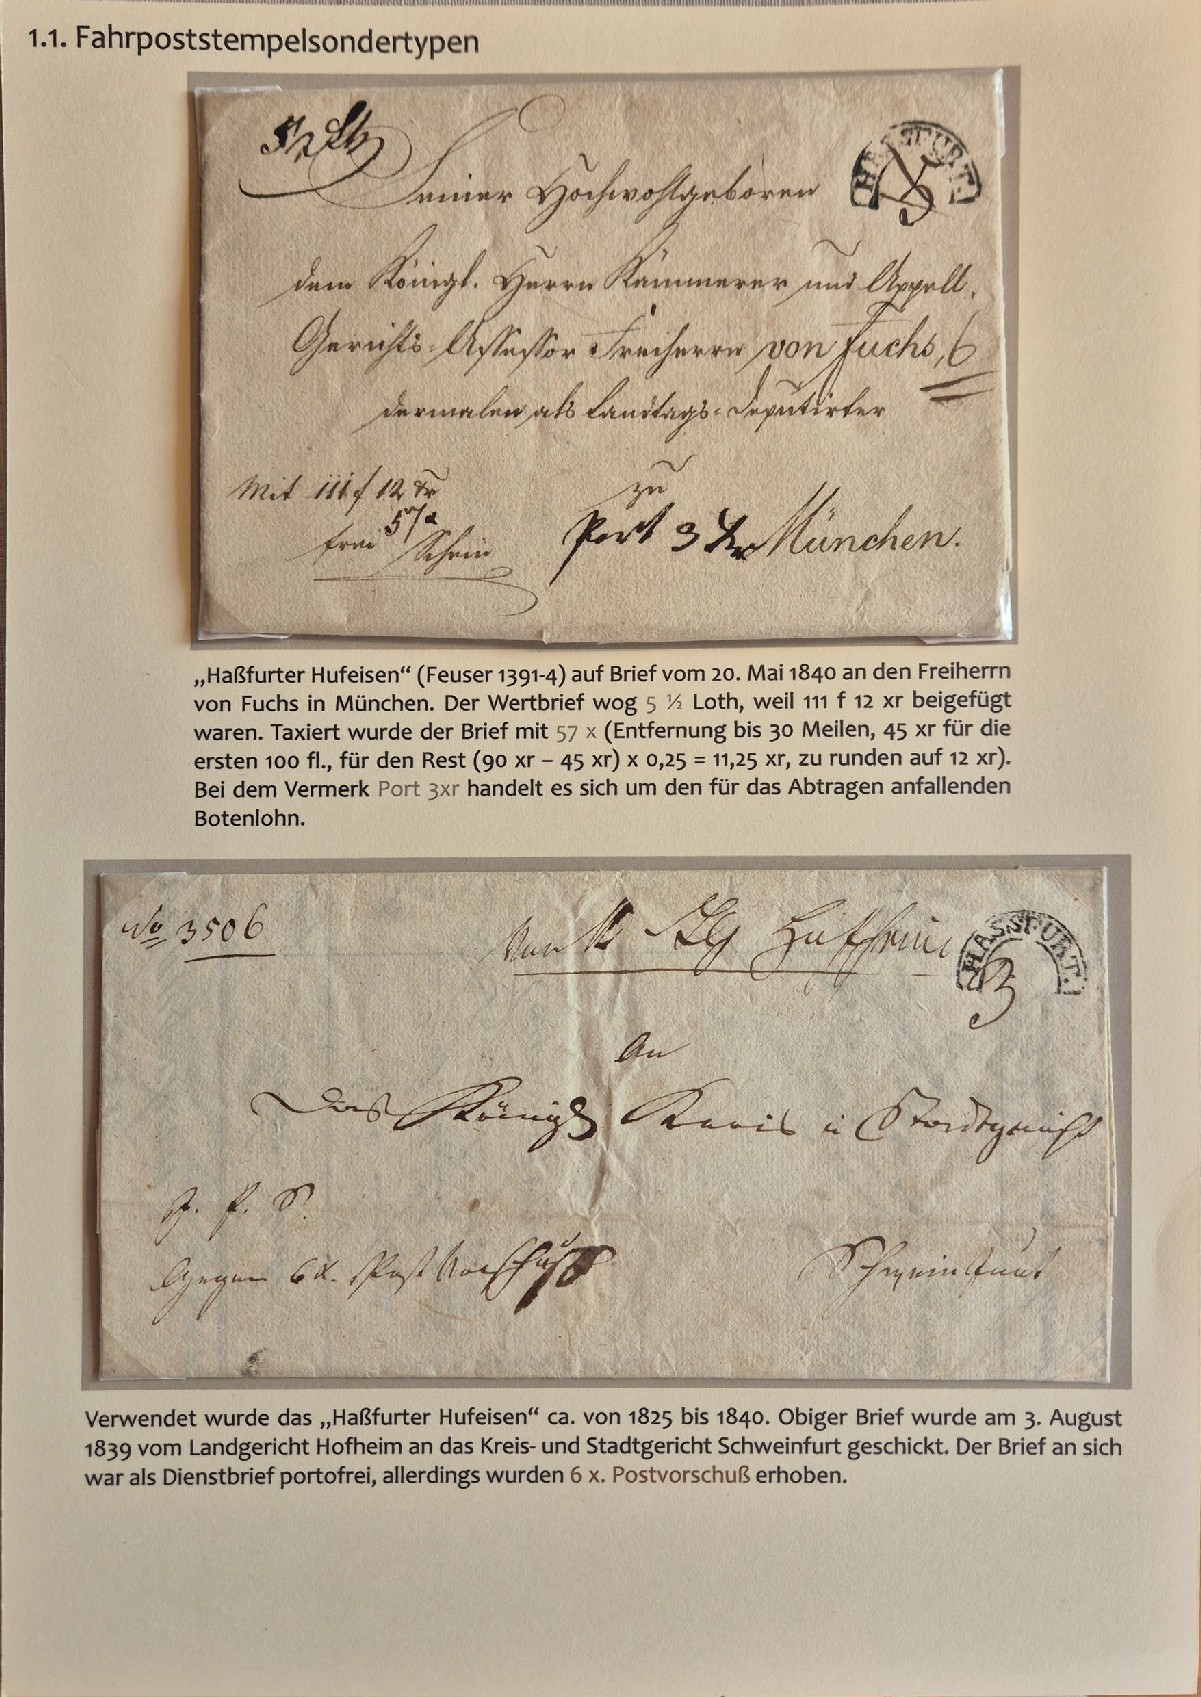 1.1. Fahrpoststempelsondertypen
5 ½ Lth
HASSFURT.
Seiner Hochwohlgeboren
dem Königl. Herrn Kämmerer und Appell.
Gerichts-Assessor Freiherrn von Fuchs, 6
dermalen als Landtags-Deputirter
Mit 111 f 12 xr
zu
57/x
frei Schein
Port 3 Xr München.
„Haßfurter Hufeisen“ (Feuser 1391-4) auf Brief vom 20. Mai 1840 an den Freiherrn
von Fuchs in München. Der Wertbrief wog 5 ½ Loth, weil 111 f 12 xr beigefügt
waren. Taxiert wurde der Brief mit 57 x (Entfernung bis 30 Meilen, 45 xr für die
ersten 100 fl., für den Rest (90 xr – 45 xr) x 0,25 = 11,25 xr, zu runden auf 12 xr).
Bei dem Vermerk Port 3xr handelt es sich um den für das Abtragen anfallenden
Botenlohn.
No 3506
Von K LG Hofheim
HASSFURT.
3
An
Das Königl Kreis u Stadtgericht
Gegen 6 x. Postvorschuß
Schweinfurt
Verwendet wurde das „Haßfurter Hufeisen“ ca. von 1825 bis 1840. Obiger Brief wurde am 3. August
1839 vom Landgericht Hofheim an das Kreis- und Stadtgericht Schweinfurt geschickt. Der Brief an sich
war als Dienstbrief portofrei, allerdings wurden 6 x. Postvorschuß erhoben.